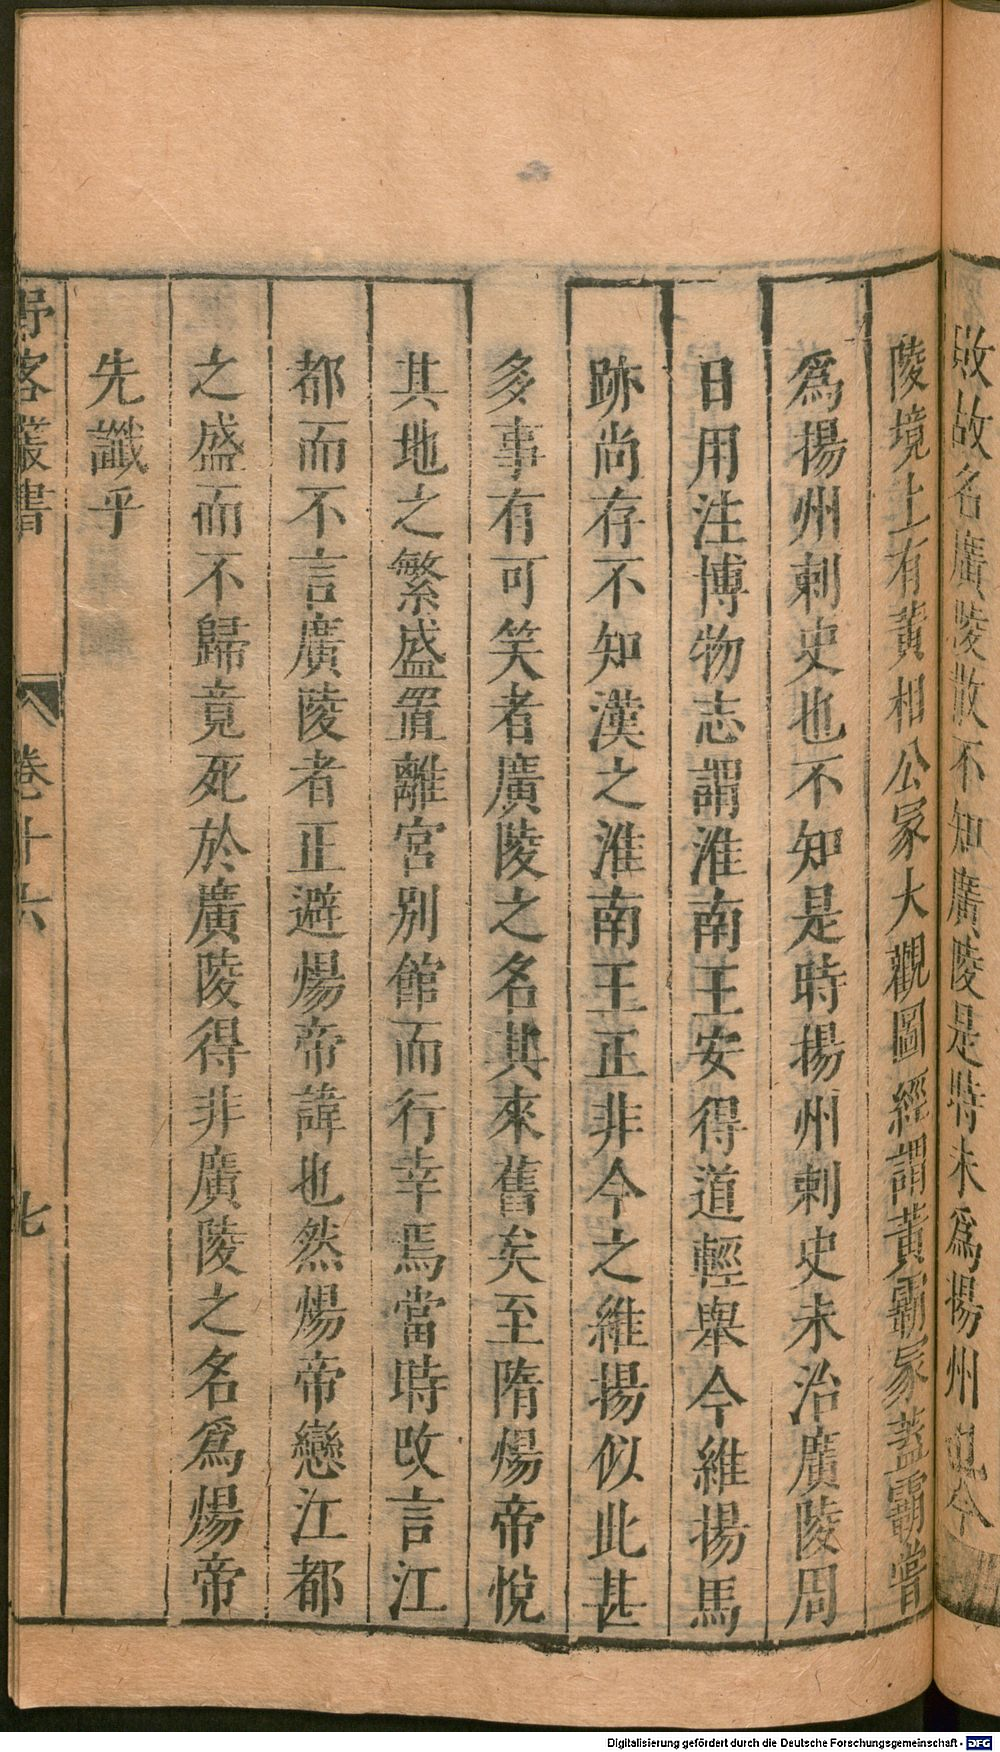 敗故名廣陵散不知廣陵是時未爲揚州也今
陵境上有黃相公冢大觀圖經謂黃霸冢蓋霸嘗
爲揚州刺史也不知是時揚州刺史未治廣陵周
日用注博物志謂淮南王安得道輕舉今維揚馬
跡尚存不知漢之淮南王正非今之維揚似此甚
多事有可笑者廣陵之名其來舊矣至隋煬帝悅
其地之繁盛置離宮別館而行幸焉當時改言江
都而不言廣陵者正避煬帝諱也然煬帝戀江都
之盛而不歸竟死於廣陵得非廣陵之名爲煬帝
先讖乎
野客叢書 卷十六 七
Digitalisierung gefördert durch die Deutsche Forschungsgemeinschaft - DFG